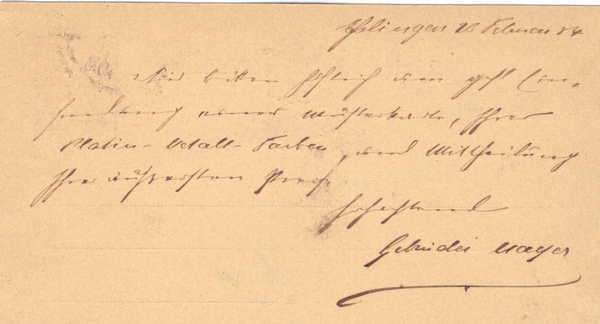 Esslingen 28 Februar 84
Wir bitten höflich um gefl. Ein-
sendung einer Musterkarte, Ihrer
Platin-Metall-Farben, und Mittheilung
Ihrer äußersten Preise
Achtend
Gebrüder Mayer